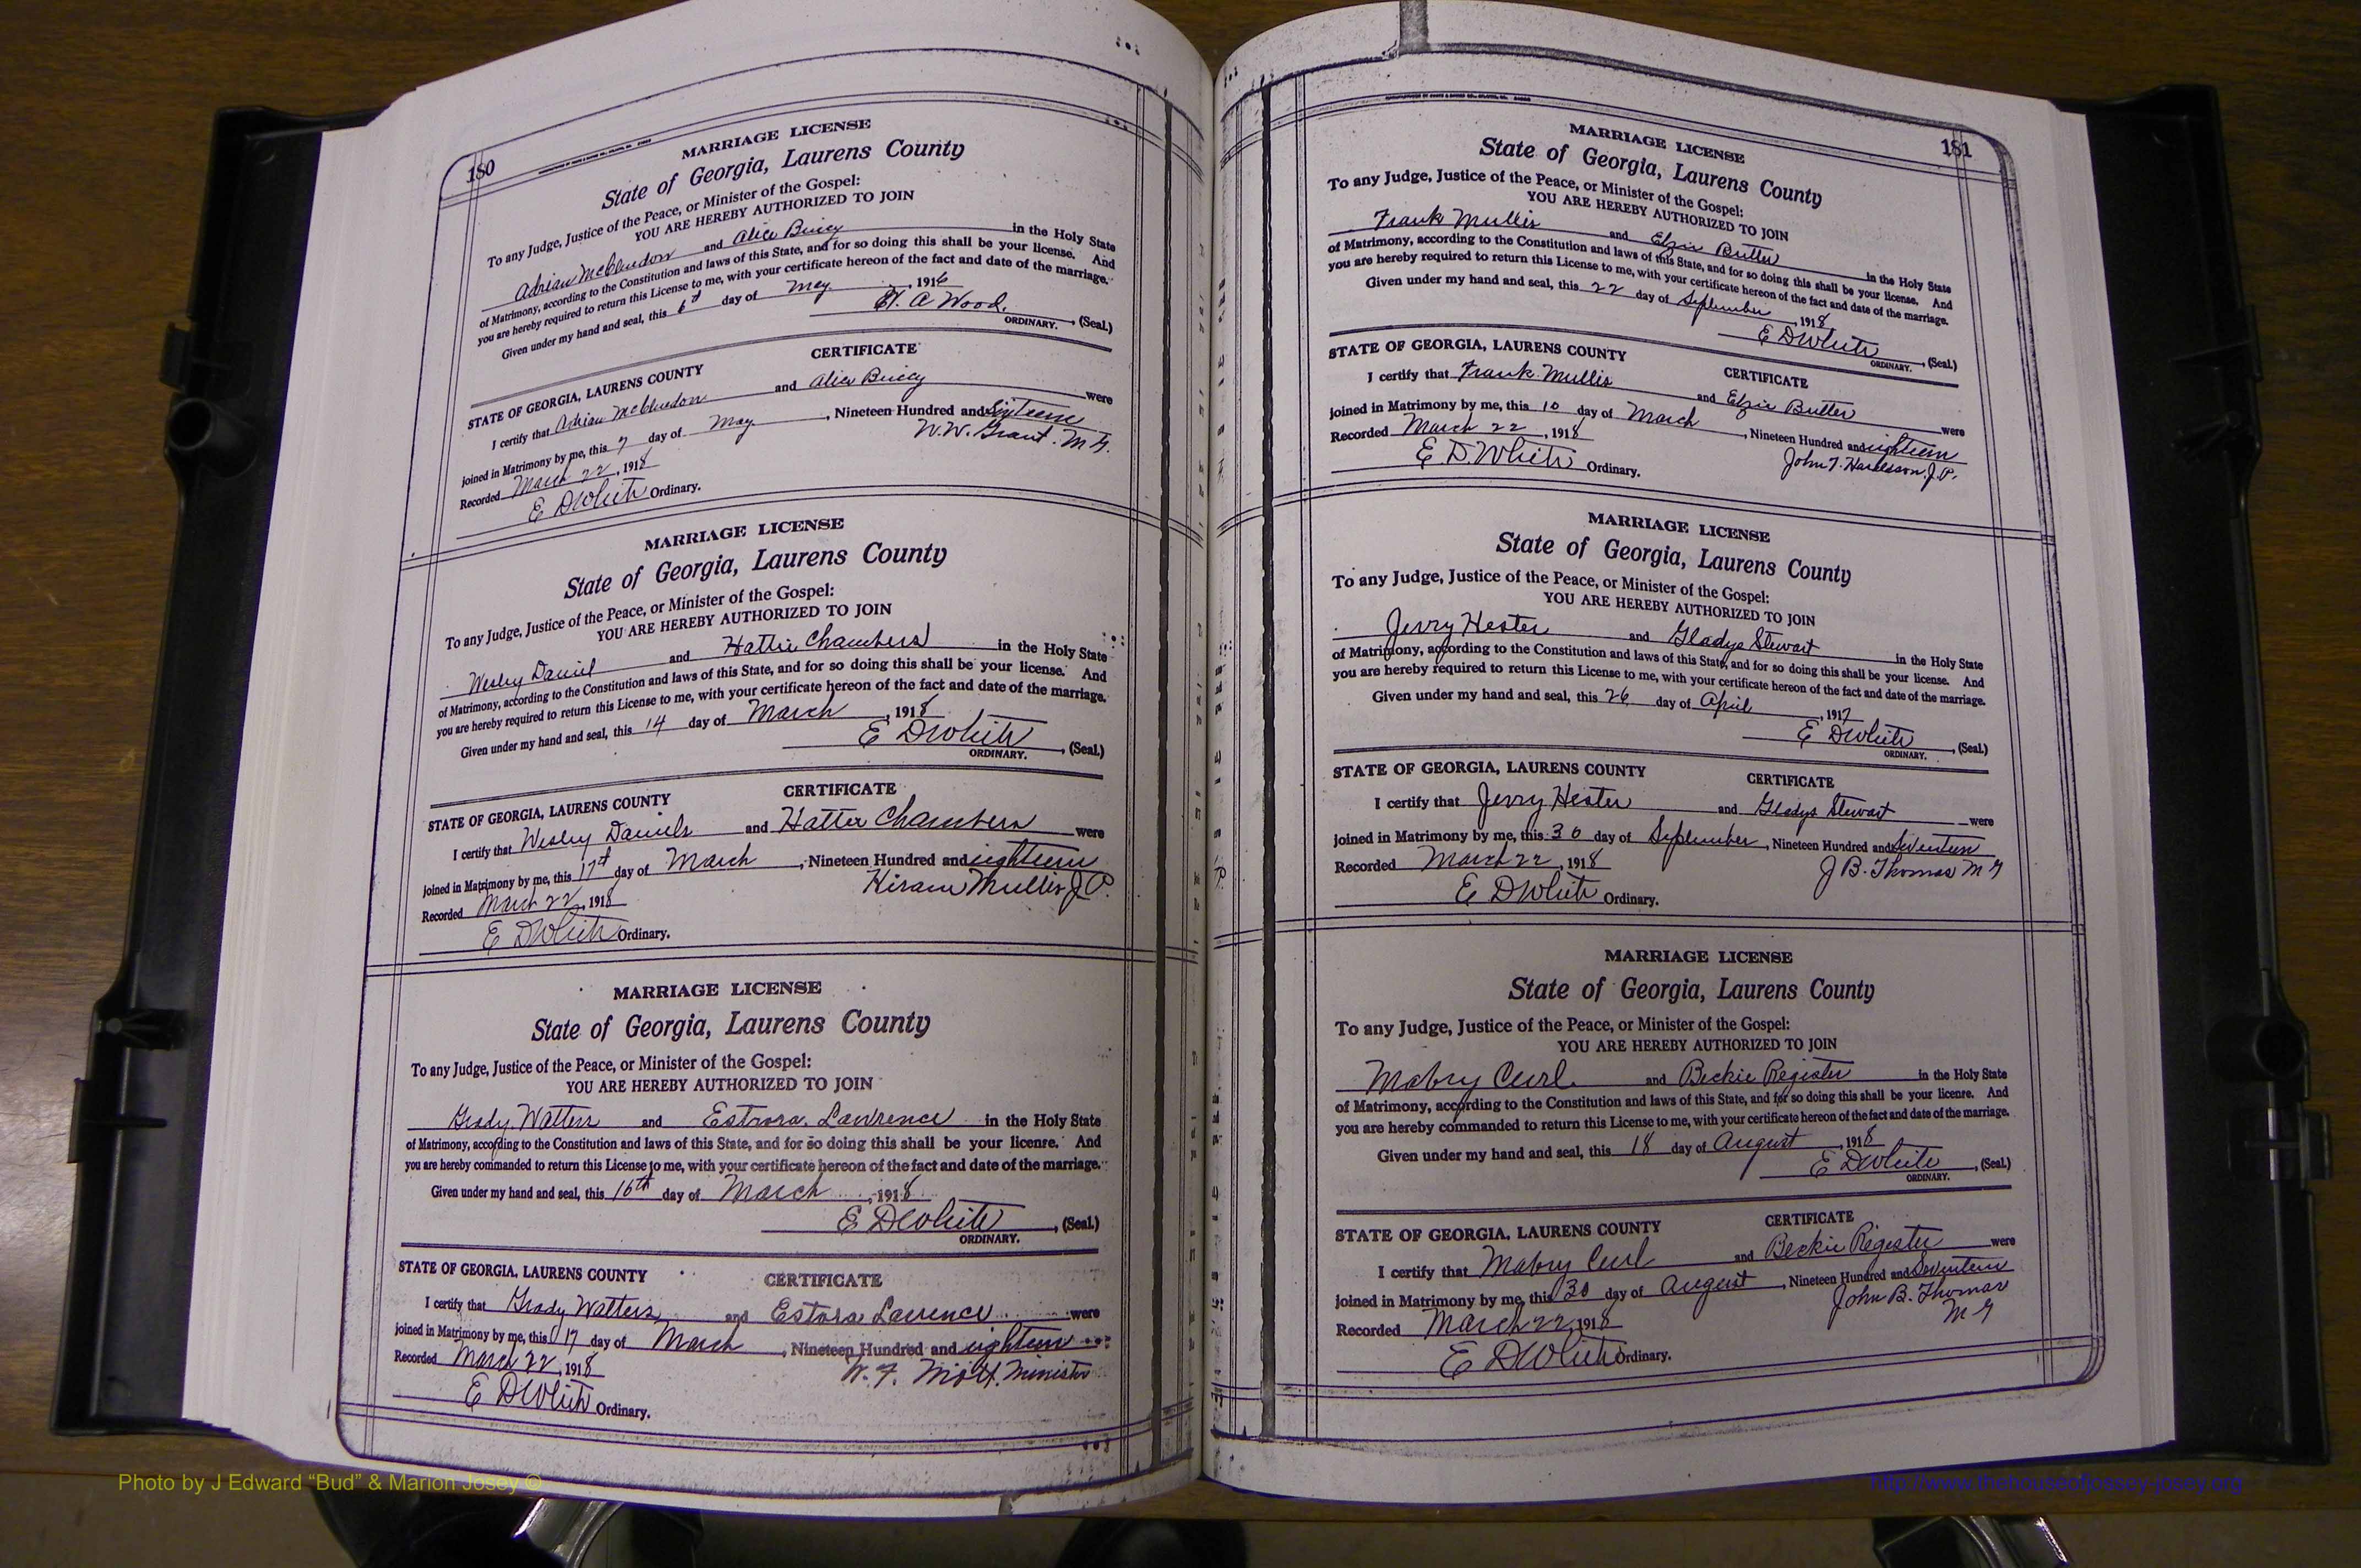 180
MARRIAGE LICENSE
State of Georgia, Laurens County
To any Judge, Justice of the Peace, or Minister of the Gospel:
YOU ARE HEREBY AUTHORIZED TO JOIN
Adrian McClendon and Alice in the Holy State
of Matrimony, according to the Constitution and laws of this State, and for so doing this shall be your license. And
you are hereby required to return this License to me, with your certificate hereon of the fact and date of the marriage.
Given under my hand and seal, this 6th day of May, 1916
A Wood, (Seal.)
ORDINARY.
CERTIFICATE
STATE OF GEORGIA, LAURENS COUNTY
I certify that Adrian McClendon and Alice were
joined in Matrimony by me, this 7 day of May, Nineteen Hundred and Sixteen
Recorded March 22, 1918 W.W. Grant. M.G.
E D White Ordinary.
MARRIAGE LICENSE
State of Georgia, Laurens County
To any Judge, Justice of the Peace, or Minister of the Gospel:
YOU ARE HEREBY AUTHORIZED TO JOIN
Wesley Daniel and Hattie Chambers in the Holy State
of Matrimony, according to the Constitution and laws of this State, and for so doing this shall be your license. And
you are hereby required to return this License to me, with your certificate hereon of the fact and date of the marriage.
Given under my hand and seal, this 14 day of March, 1918
E D White, (Seal.)
ORDINARY.
CERTIFICATE
STATE OF GEORGIA, LAURENS COUNTY
I certify that Wesley Daniels and Hattie Chambers were
joined in Matrimony by me, this 17th day of March, Nineteen Hundred and eighteen
Recorded March 22, 1918 Hiram Mullis J.P.
E D White Ordinary.
MARRIAGE LICENSE
State of Georgia, Laurens County
To any Judge, Justice of the Peace, or Minister of the Gospel:
YOU ARE HEREBY AUTHORIZED TO JOIN
Grady Watters and Estora Lawrence in the Holy State
of Matrimony, according to the Constitution and laws of this State, and for so doing this shall be your license. And
you are hereby commanded to return this License to me, with your certificate hereon of the fact and date of the marriage.
Given under my hand and seal, this 16th day of March, 1918
E D White, (Seal.)
ORDINARY.
STATE OF GEORGIA, LAURENS COUNTY CERTIFICATE
I certify that Grady Watters and Estora Lawrence were
joined in Matrimony by me, this 17 day of March, Nineteen Hundred and eighteen
Recorded March 22, 1918 Mott, Minister
E D White Ordinary.
181
MARRIAGE LICENSE
State of Georgia, Laurens County
To any Judge, Justice of the Peace, or Minister of the Gospel:
YOU ARE HEREBY AUTHORIZED TO JOIN
Frank Mullis and Elzie Butler in the Holy State
of Matrimony, according to the Constitution and laws of this State, and for so doing this shall be your license. And
you are hereby required to return this License to me, with your certificate hereon of the fact and date of the marriage.
Given under my hand and seal, this 22 day of September, 1918
E D White, (Seal.)
ORDINARY.
STATE OF GEORGIA, LAURENS COUNTY CERTIFICATE
I certify that Frank Mullis and Elzie Butler were
joined in Matrimony by me, this 10 day of March, Nineteen Hundred and eighteen
Recorded March 22, 1918 John T. J.P.
E. D. White Ordinary.
MARRIAGE LICENSE
State of Georgia, Laurens County
To any Judge, Justice of the Peace, or Minister of the Gospel:
YOU ARE HEREBY AUTHORIZED TO JOIN
Jerry Hester and Gladys Stewart in the Holy State
of Matrimony, according to the Constitution and laws of this State, and for so doing this shall be your license. And
you are hereby required to return this License to me, with your certificate hereon of the fact and date of the marriage.
Given under my hand and seal, this 26 day of April, 1917
E D White, (Seal.)
ORDINARY.
STATE OF GEORGIA, LAURENS COUNTY CERTIFICATE
I certify that Jerry Hester and Gladys Stewart were
joined in Matrimony by me, this 30 day of September, Nineteen Hundred and Seventeen
Recorded March 22, 1918 J B. Thomas M G
E D White Ordinary.
MARRIAGE LICENSE
State of Georgia, Laurens County
To any Judge, Justice of the Peace, or Minister of the Gospel:
YOU ARE HEREBY AUTHORIZED TO JOIN
Mabry Curl and Beckie Register in the Holy State
of Matrimony, according to the Constitution and laws of this State, and for so doing this shall be your license. And
you are hereby commanded to return this License to me, with your certificate hereon of the fact and date of the marriage.
Given under my hand and seal, this 18 day of August, 1918
E D White, (Seal.)
ORDINARY.
STATE OF GEORGIA, LAURENS COUNTY CERTIFICATE
I certify that Mabry Curl and Beckie Register were
joined in Matrimony by me, this 30 day of August, Nineteen Hundred and Seventeen
Recorded March 22, 1918 John B. Thomas
M G
E D White Ordinary.
Photo by J Edward “Bud” & Marion Josey ©
http://www.thehouseofjossey-josey.org